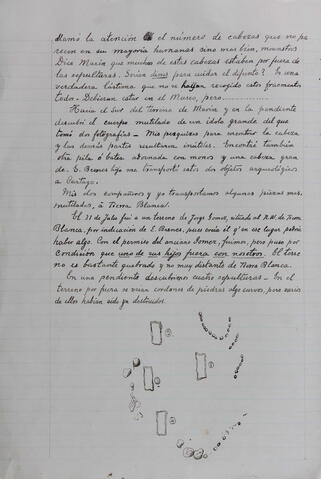 llamó la atención el número de cabezas que no pa-
recen en su mayoría humanas sino mas bien, monstruos
Dice Marín que muchas de estas cabezas estaban por fuera de
las sepulturas. Serían dioses para cuidar el difunto? Es una
verdadera lástima que no se hallan recogido estos fragmentos
todos - Debieran estar en el Museo, pero
Hacia el Sur del terreno de Marín y en la pendiente
descubrí el cuerpo mutilado de un ídolo grande del que
tomé dos fotografías - Mis pesquizas para encontrar la cabeza
y las demás partes resultaron inútiles. Encontré también
otra pila ó batea adornada con monos y una cabeza gran
de. E. Brenes hijo me transportó estos dos objetos arqueológicos
a Cartago.
Mis dos compañeros y yo transportamos algunas piezas mas,
mutiladas, á Tierra Blanca.
El 31 de Julio fuí a un terreno de Jorge Gomez, situado al N.W. de Tierra
Blanca, por indicación de E. Brenes, pues creía él qe en ese lugar podría
haber algo. Con el permiso del anciano Gomez, fuimos, pero puso por
condición que uno de sus hijos fuera con nosotros. El terre
no es bastante quebrado y no muy distante de Tierra Blanca.
En una pendiente descubrimos cuatro sepulturas - En el
terreno por fuera se veían cordones de piedras algo curvos, pero varios
de ellos habían sido ya destruidos.